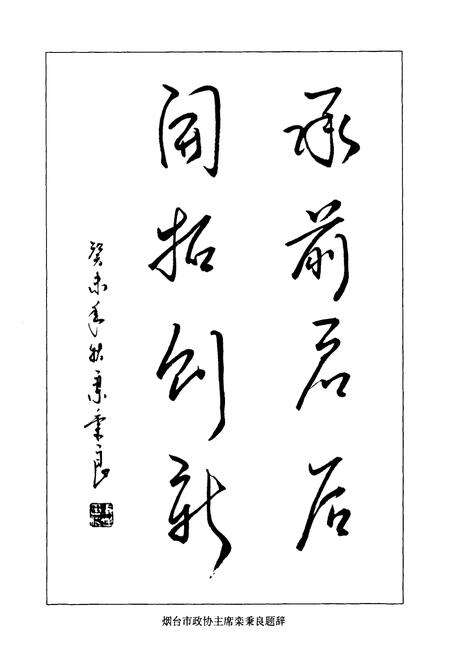 承前启后
開拓创新
癸未年秋栾秉良
烟台市政协主席栾秉良题辞